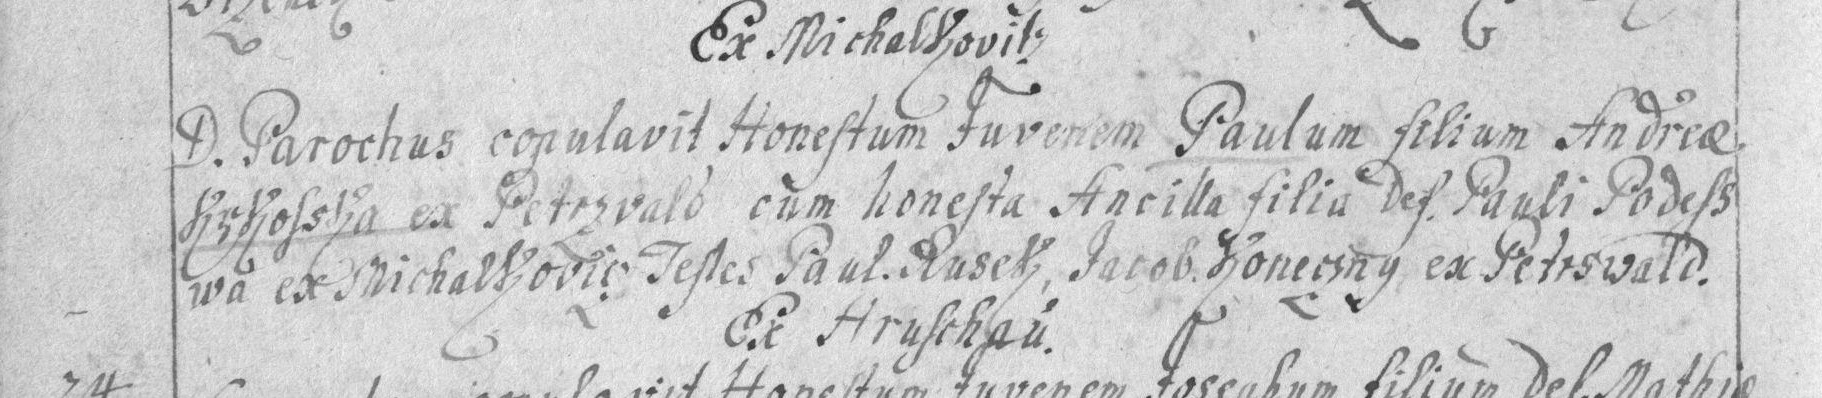 Ex Michalkovitz
D. Parochus copulavit Honestum Juvenem Paulum filium Andreæ
ex Petrzvald cum honesta Ancilla filia Def. Pauli Podess
wa ex Michalkovic Testes Paul. Rusek, Jacob. Konecżny ex Petrswald.
Ex Hruschau.
24 copulavit Honestum Juvenem Josephum filium Def. Mathiæ